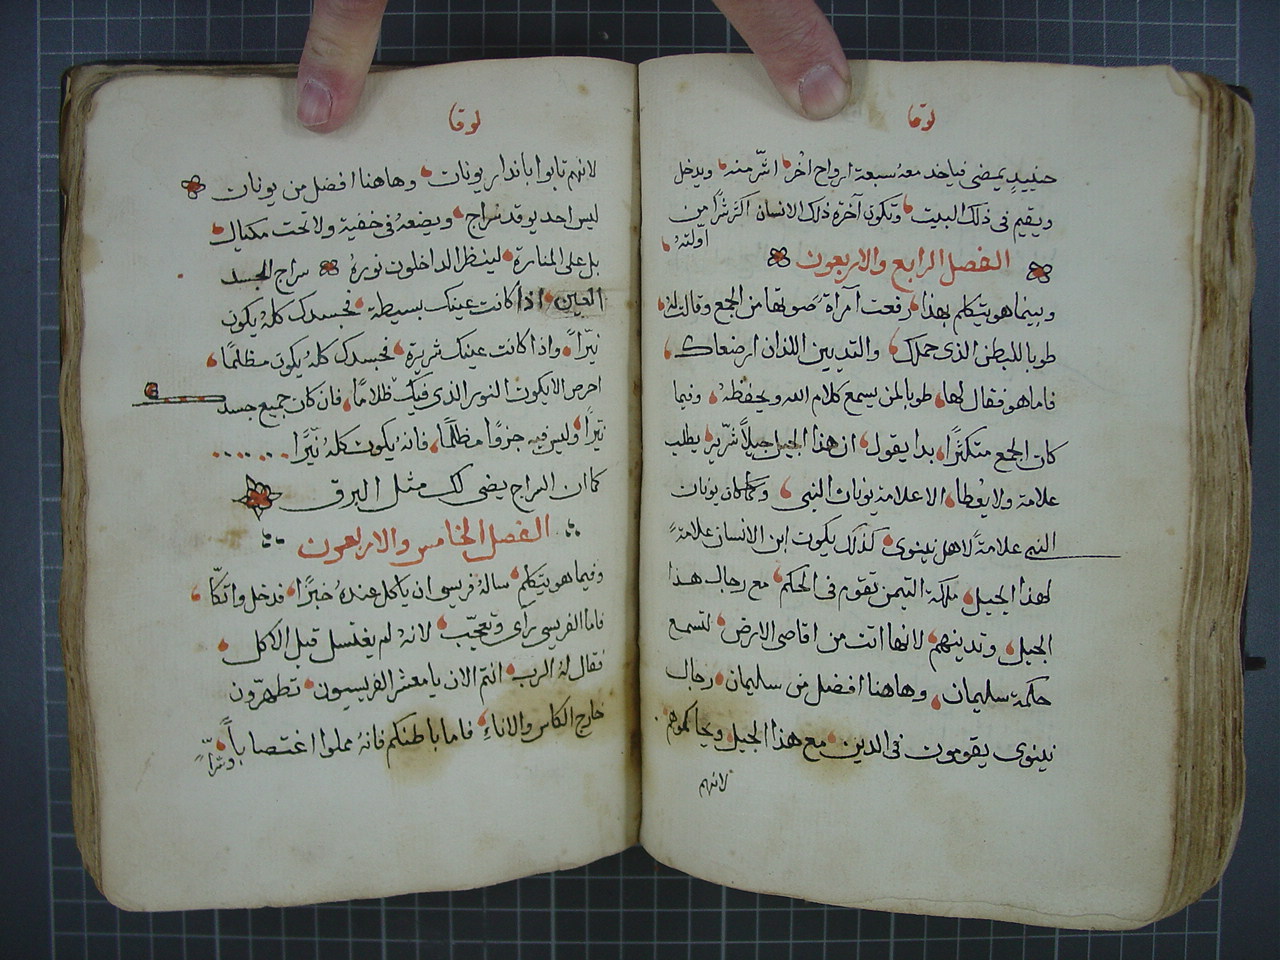 لوقا
حينيدٍ يمضى فياخد معهُ سبعة ارواح اخر اشرّ منه ويدخل
ويقيم فى ذلك البيت وتكون آخرة ذلك الانسان اكثر شرًا من
اولته
الفصل الرابع والاربعون
وبينما هو يتكلم بهذا رفعت آمراة صوتها من الجمع وقالت له
طوبا للبطن الذى حملك والتديين اللذان ارضعاك
فاما هو فقال لها طوبا لمن يسمع كلام الله ويحفظهُ وفيما
كان الجمع متكثرًا بدا يقول ان هذا الجيل جيلاً شرير يطلب
علامة ولا يعُطا الا علامة يونان النبي وكما كان يونان
النبى علامةً لاهل نينوى كذلك يكون ابن الانسان علامةً
لهذا الجيل ملكة التيمن تقوم فى الحكم مع رجال هذا
الجيل وتدينهم لانها اتت من اقاصى الارض لتسمع
حكمة سليمان وهاهنا افضل من سليمان رجال
نينوى يقومون فى الدين مع هذا الجيل ويحاكموهم
لانهم
لوقا
لانهم تابوا باندار يونان وهاهنا افضل من يونان
ليس احد يوقد سراج ويضعهُ فى خفية ولا تحت مكيال
بل على المنارة لينظر الداخلون نورهُ سراج الجسد
العين اذا كانت عينك بسيطة فجسدك كلهُ يكون
نيّراً واذا كانت عينك شريرة فجسدك كله يكون مظلمًا
احرص الا يكون النور الذى فيك ظلامًا فان كان جميع جسد
نيّرًا وليس فيه جزوًا مظلمًا فانه يكون كله نيّرًا
كما ان السراج يضى لك مثل البرق
الفصل الخامس والاربعون
وفيما هو يتكلم سالهُ فريسى ان ياكل عندهُ خبزًا فدخل واتكّا
فاما الفريسي رآى وتعجّب لانهُ لم يغتسل قبل الاكل
فقال لهُ الرب انتم الان يا معشر الفريسيون تطهّرون
خارج الكاس والاناءِ فاما باطنكم فانهُ مملوا اغتصاباً
وشرّاً